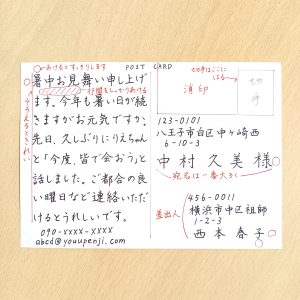 あけるとすっきりします
POST CARD
暑中お見舞い申し上げ
行間をしっかりあける
ます。今年も暑い日が続
きますがお元気ですか。
先日、久しぶりにりえちゃん
と「今度、皆で会おう」と
話しました。ご都合の良
い曜日など連絡いただ
けるとうれしいです。
090-xxxx-xxxx
abcd@youupenji.com
そろえるときれい
切手はここに
はる
切手
消印
123-0101
八王子市白区中ヶ崎西
6-10-3
中村久美様
宛名は一番大きく
差出人
456-0011
横浜市中区祖師
1-2-3
西本春子